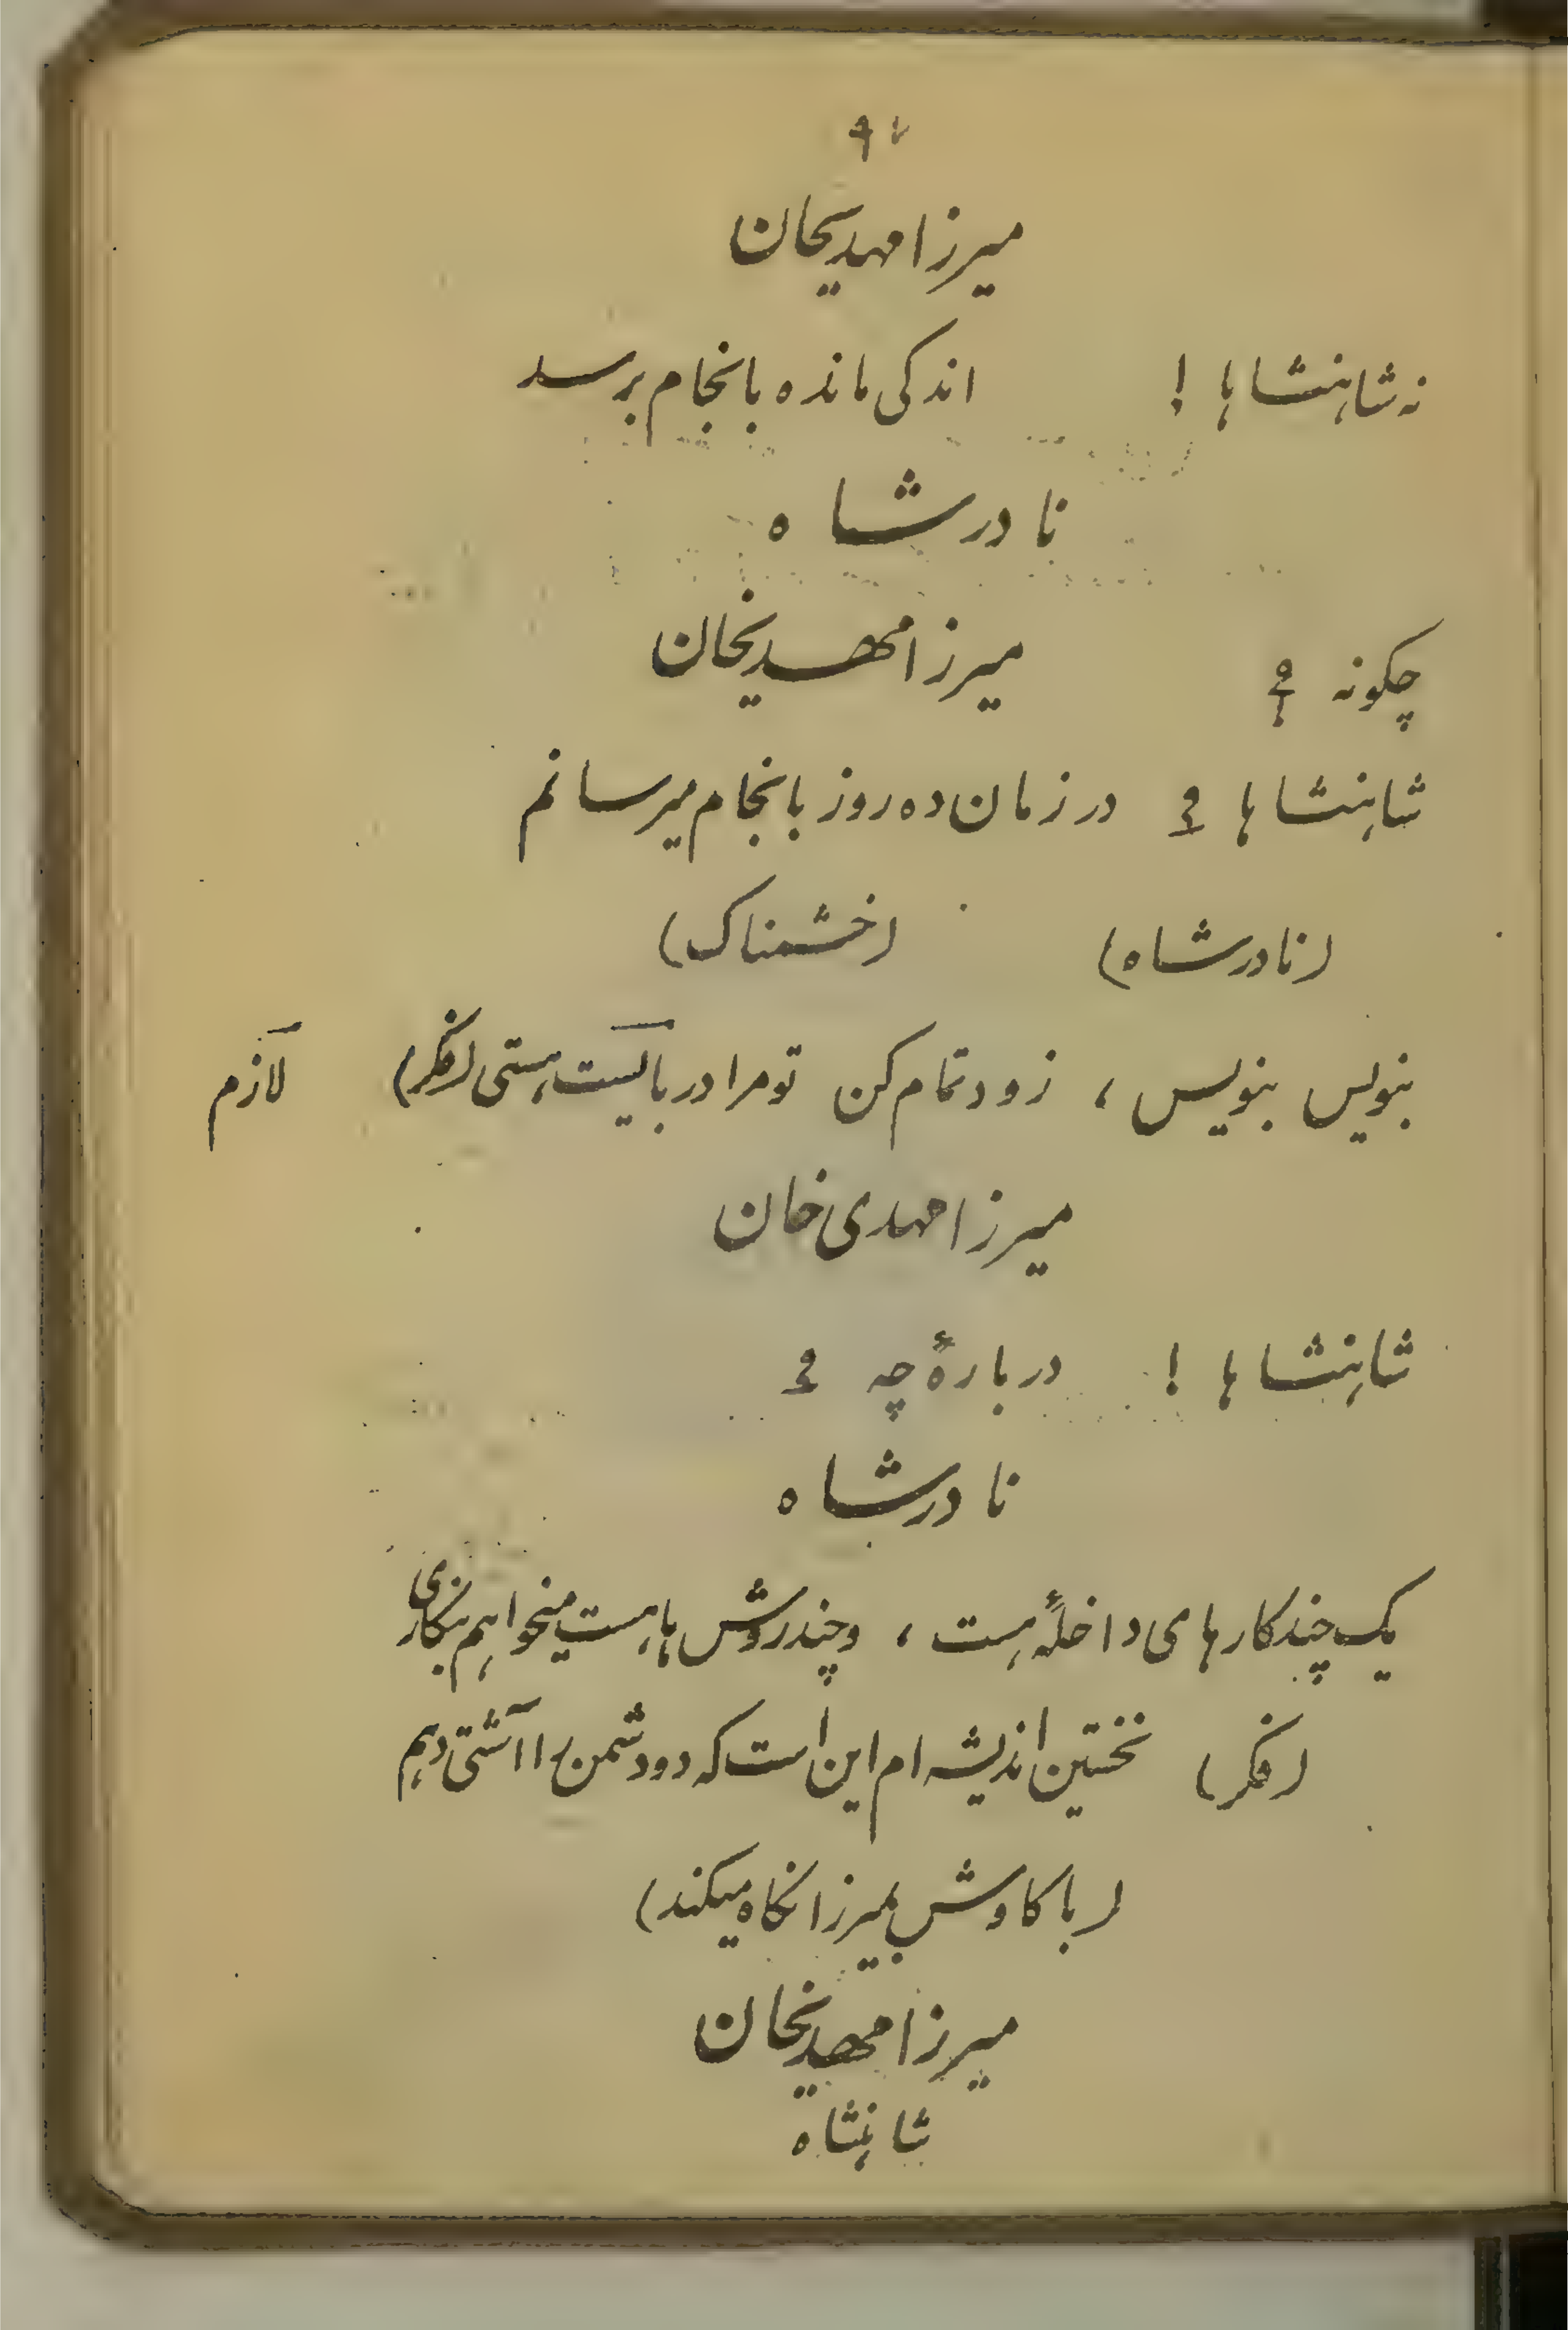 میرزا مهدیخان
نه شاهنشاها ! اندکی مانده بانجام برسد
نادرشاه
میرزا مهدیخان
چکونه ؟
شاهنشاها ؟ در زمان ده روز بانجام میرسانم
(نادرشاه) (خشمناک)
بنویس بنویس ، زود تمام کن تو مرا در بایست هستی (فکر)
لازم
میرزا مهدی خان
شاهنشاها ! دربارهٔ چه ؟
نادرشاه
یک چند کارهای داخلهٔ هست ، و چند روش ها هست میخواهم بنکاری
(فکر) نخستین اندیشه ام این است که دو دشمن را آشتی دهم
(با کاوش بمیرزا نکاه میکند)
میرزا مهدیخان
شاهنشاه